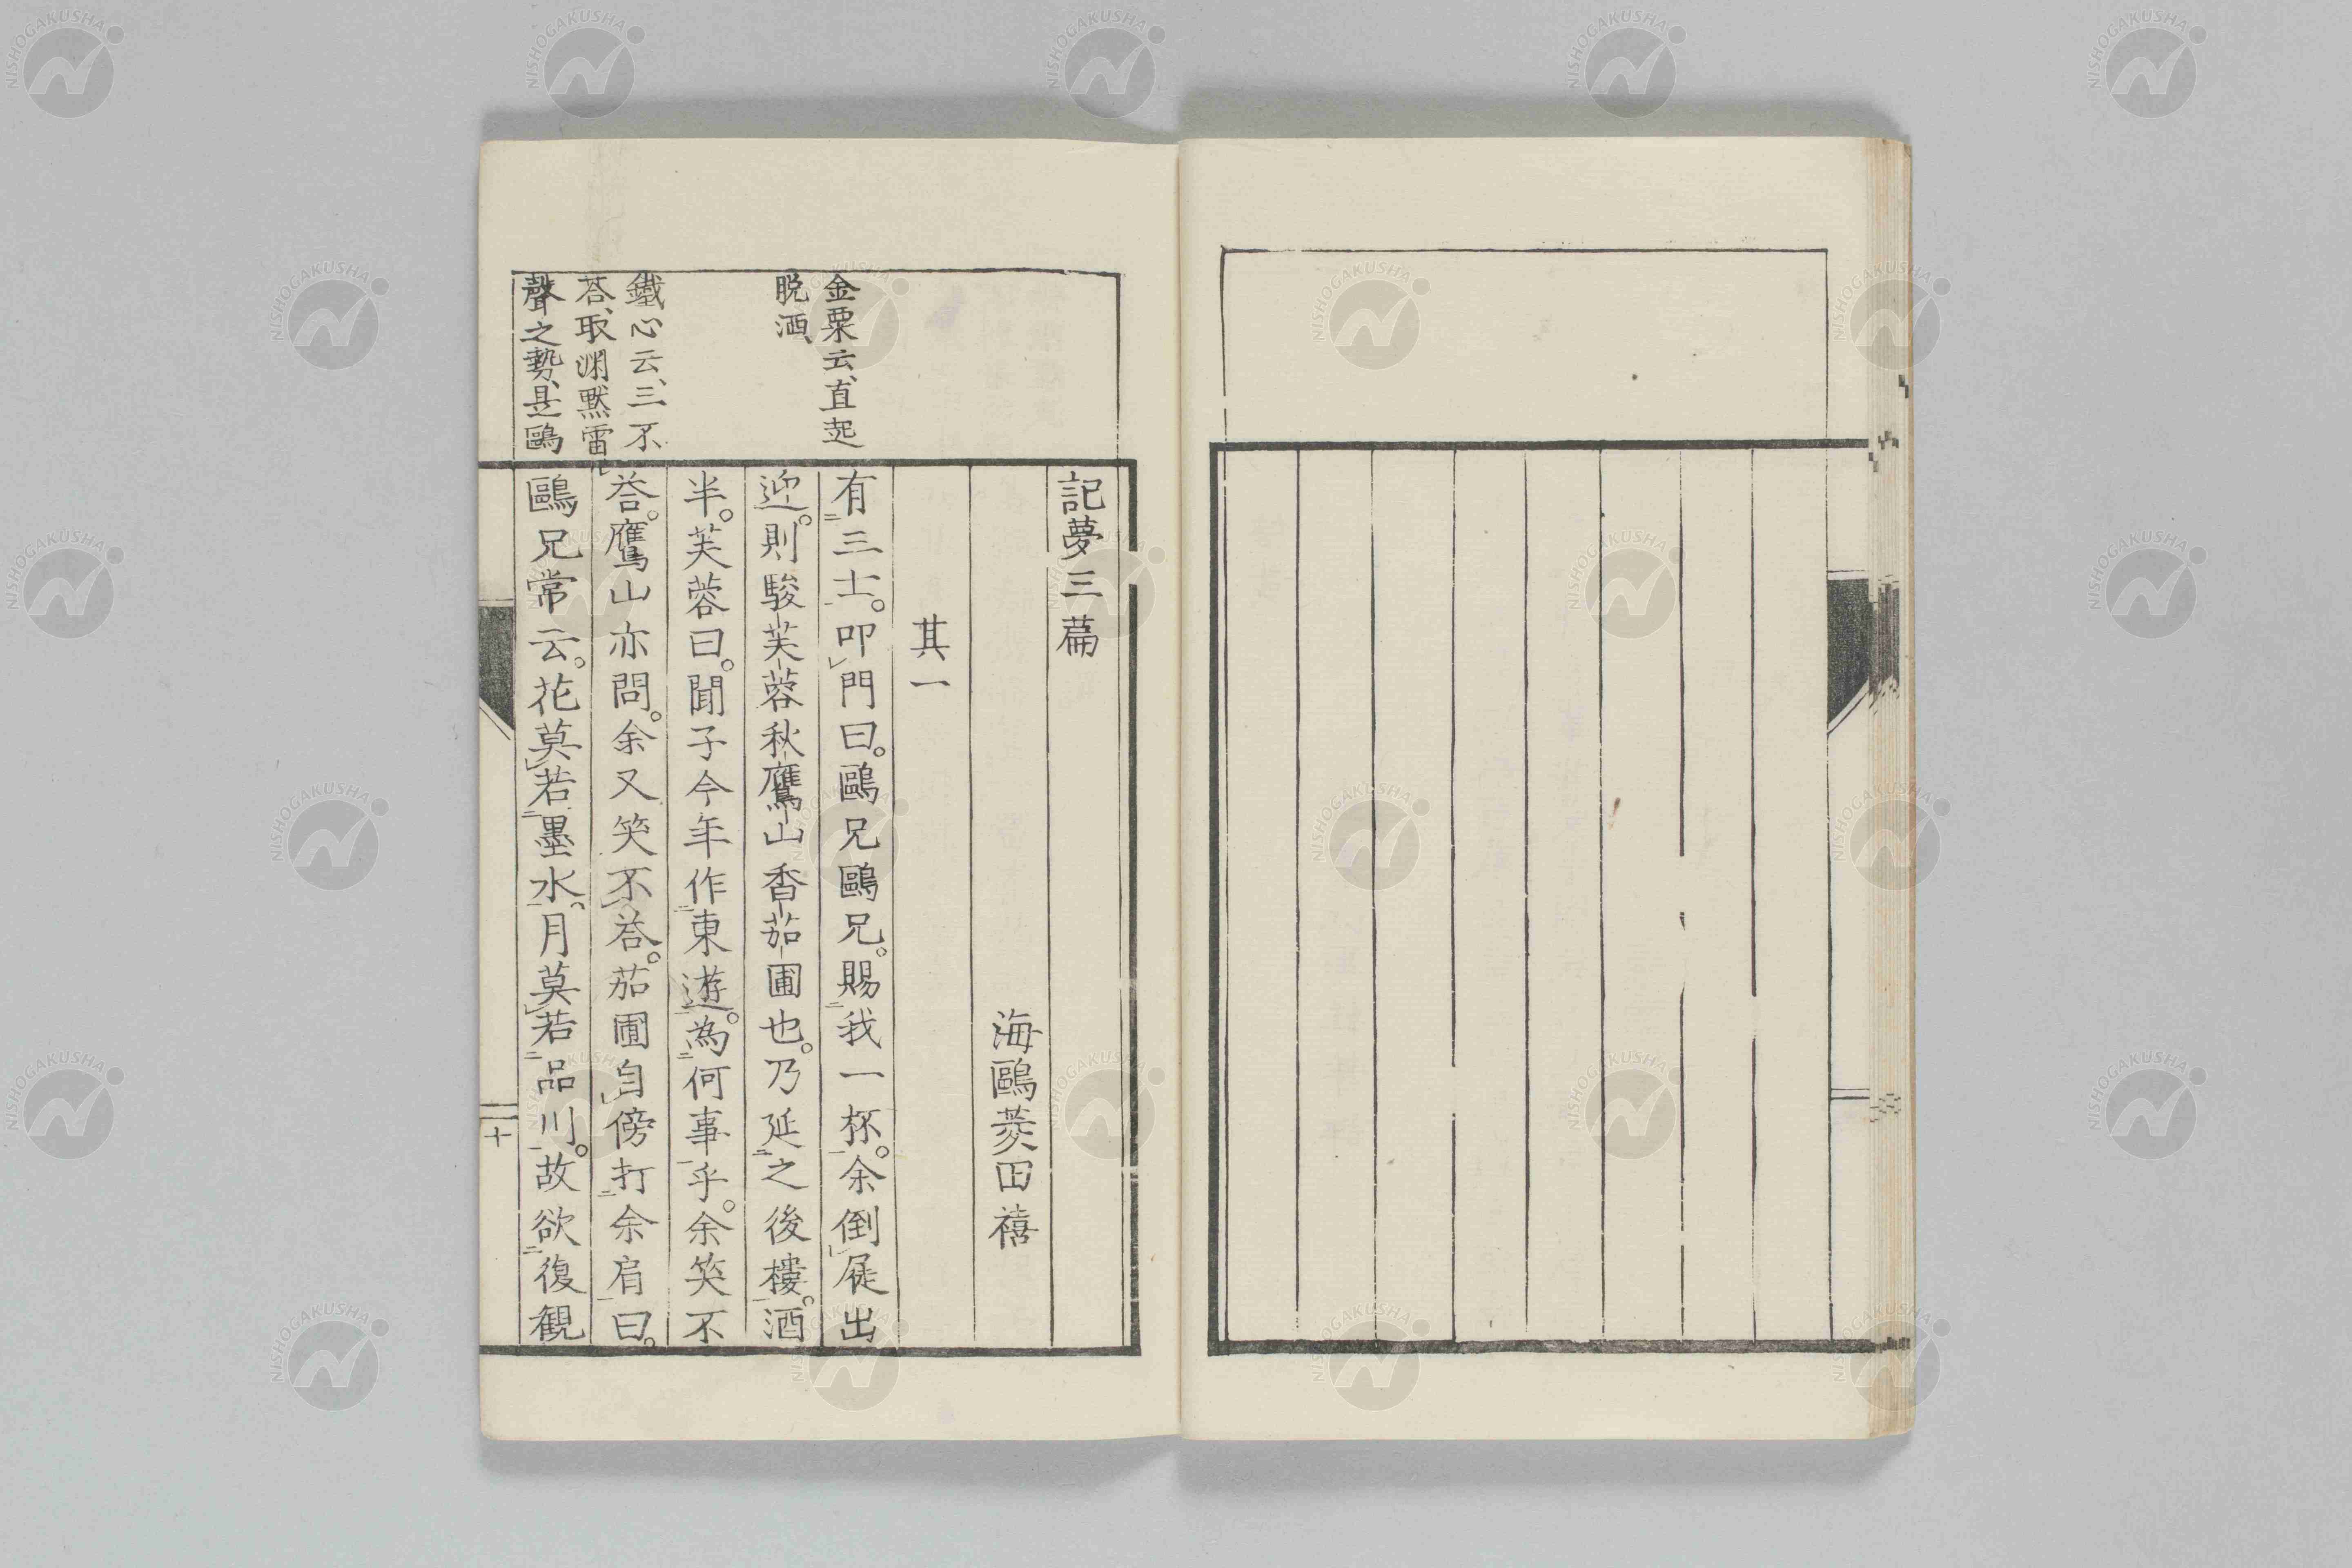 記夢三篇
海鷗菱田禧
其一
有三士。叩門曰。鷗兄鷗兄。賜我一杯。余倒屣出
迎。則駿芙蓉秋鷹山香茄圃也。乃延之後樓。酒
半。芙蓉曰。聞子今年作東遊。為何事乎。余笑不
荅。鷹山亦問。余又笑不荅。茄圃自傍打余肩曰。
鷗兄常云。花莫若墨水。月莫若品川。故欲復観
金粟云、直起
脱洒、
鐵心云、三不
荅、取淵黙雷
聲之勢、是鷗
十
NISHOGAKUSHA